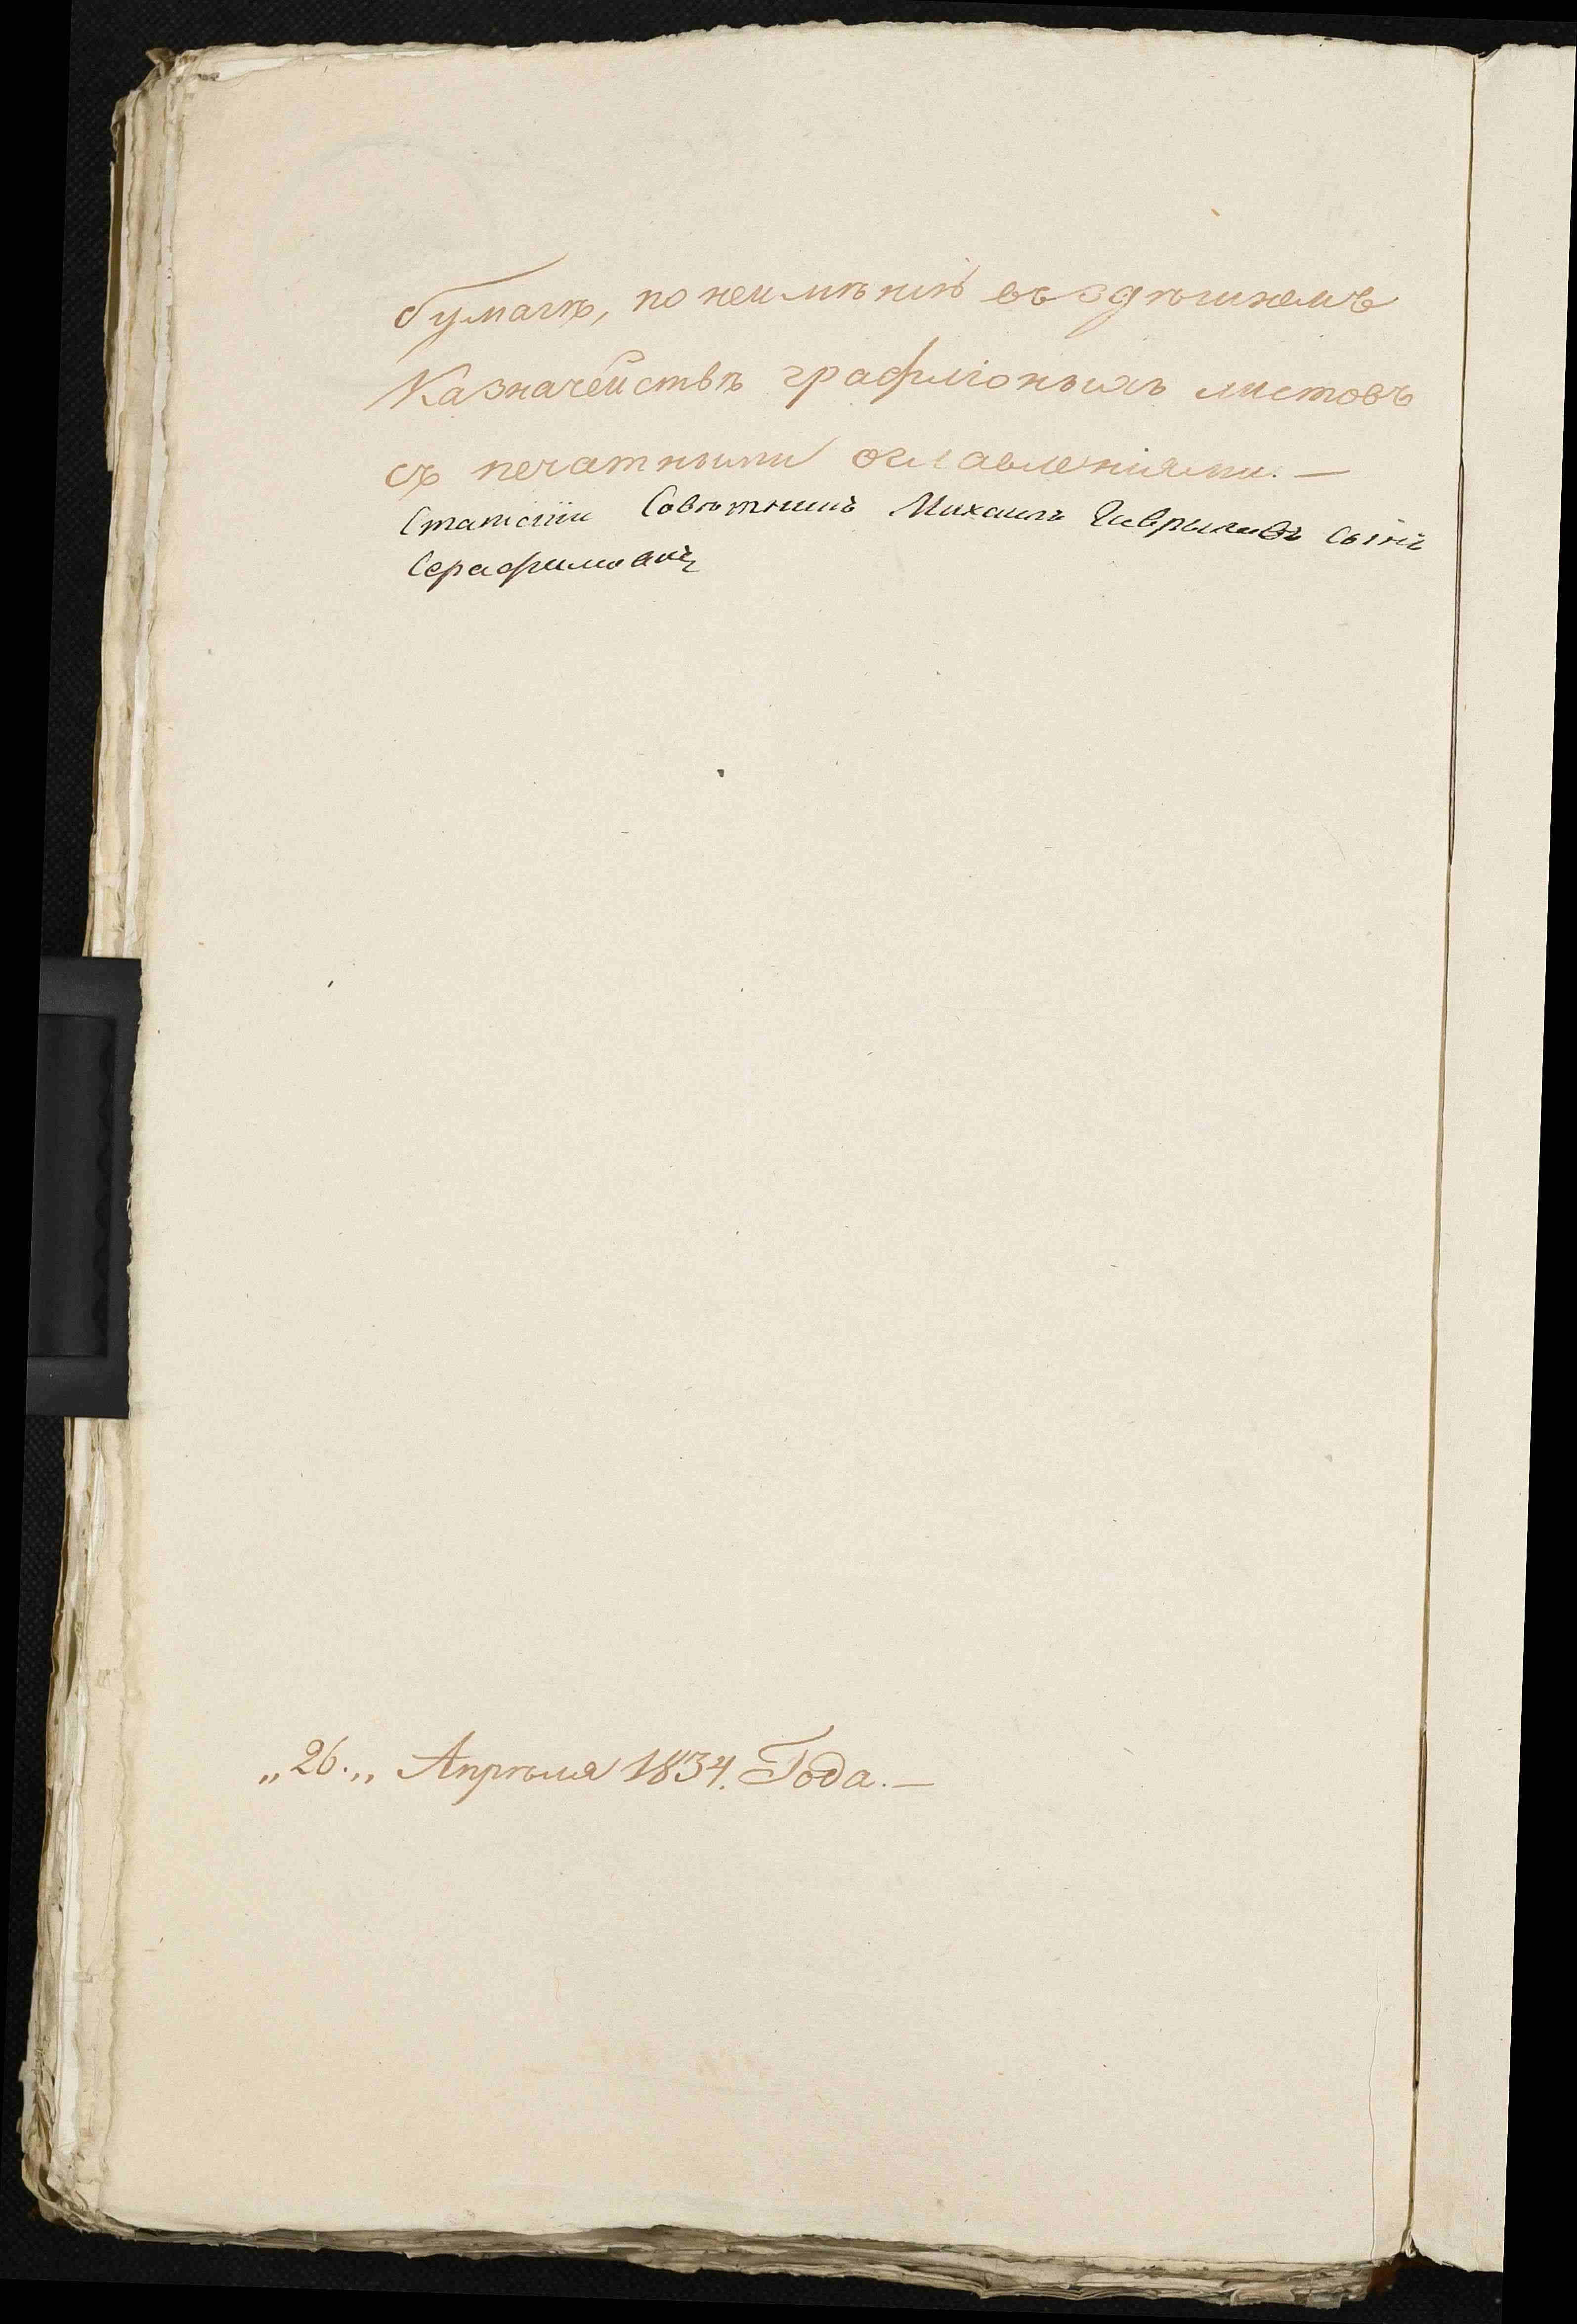 бумагѣ, по неимѣнію въ здѣшнемъ
Казначействѣ графлioныхъ листовъ
съ печатными оглавленіями. —
Статскiй Совѣтникъ Михаилъ Гаврыловъ Сынъ
Серафимовъ
„26.„ Апрѣля 1834. Года. —